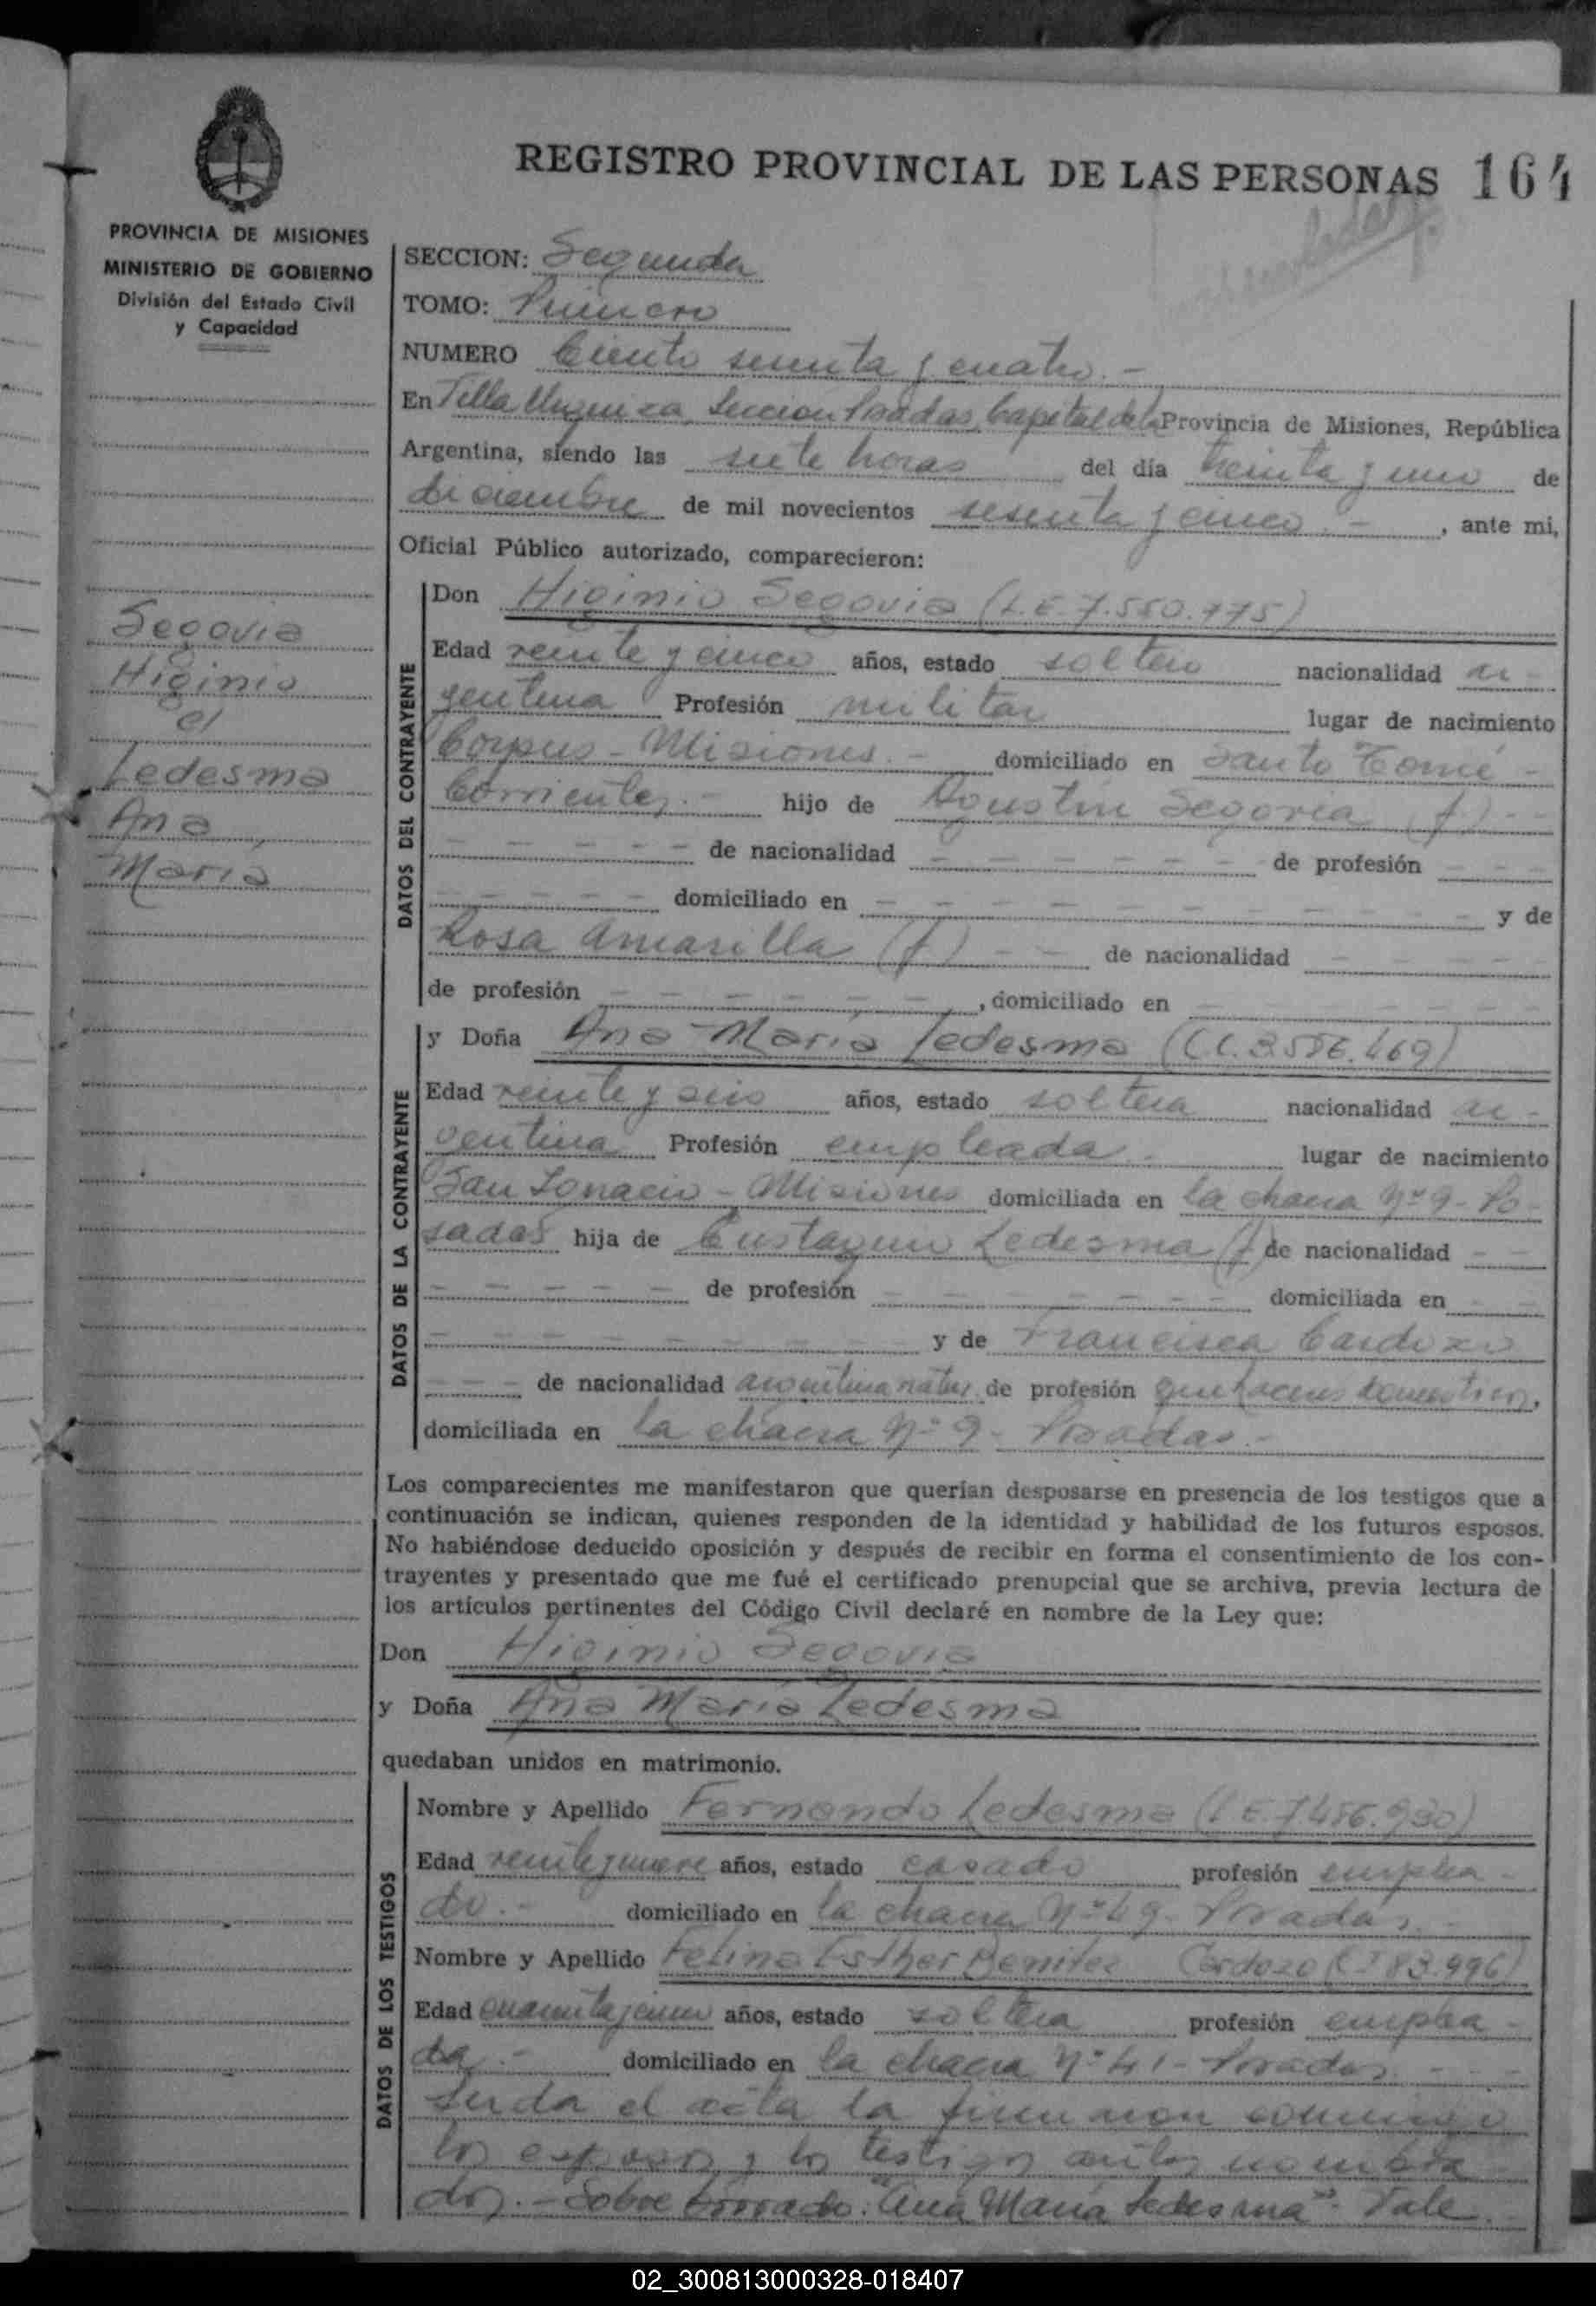 REGISTRO PROVINCIAL DE LAS PERSONAS 164
PROVINCIA DE MISIONES
MINISTERIO DE GOBIERNO
División del Estado Civil
y Capacidad
SECCION: Segunda
TOMO: Primero
NUMERO Ciento sesenta y cuatro.-
En Villa Urquiza, Seccion Posadas, Capital de la Provincia de Misiones, República
Argentina, siendo las siete horas del día treinta y uno de
diciembre de mil novecientos sesenta y cinco.-, ante mi,
Oficial Público autorizado, comparecieron:
Segovia
Higinio
c/
Ledesma
Ana
María
DATOS DEL CONTRAYENTE
Don Higinio Segovia (L.E. 7.550.775)
Edad veinte y cinco años, estado soltero nacionalidad ar-
gentina Profesión militar lugar de nacimiento
Corpus - Misiones.- domiciliado en Santo Tomé -
Corrientes.- hijo de Agustín Segovia (f) - -
- - - - - de nacionalidad - - - - - - - de profesión - - -
- - - - - domiciliado en - - - - - - - - - - y de
Rosa Amarilla (f) - - de nacionalidad - - - - -
de profesión - - - - - -, domiciliado en - - - - - -
DATOS DE LA CONTRAYENTE
y Doña Ana María Ledesma (L.C. 3.586.469)
Edad veinte y seis años, estado soltera nacionalidad ar-
gentina Profesión empleada.- lugar de nacimiento
San Ignacio - Misiones domiciliada en la chacra Nº 9 - Po-
sadas hija de Eustaquio Ledesma (f) de nacionalidad - -
- - - - - - de profesión - - - - - - - domiciliada en - -
- - - - - - - - - y de Francisca Cardozo
- - - de nacionalidad argentina natur. de profesión quehaceres domesticos,
domiciliada en la chacra Nº 9 - Posadas.-
Los comparecientes me manifestaron que querían desposarse en presencia de los testigos que a
continuación se indican, quienes responden de la identidad y habilidad de los futuros esposos.
No habiéndose deducido oposición y después de recibir en forma el consentimiento de los con-
trayentes y presentado que me fué el certificado prenupcial que se archiva, previa lectura de
los artículos pertinentes del Código Civil declaré en nombre de la Ley que:
Don Higinio Segovia
y Doña Ana María Ledesma
quedaban unidos en matrimonio.
DATOS DE LOS TESTIGOS
Nombre y Apellido Fernando Ledesma (L.E. 7.486.930)
Edad veinte y nueve años, estado casado profesión emplea-
do.- domiciliado en la chacra Nº 49 - Posadas.-
Nombre y Apellido Felina Esther Benitez Cardozo (C.I 83.996)
Edad cuarenta y cinco años, estado soltera profesión emplea-
da.- domiciliado en la chacra Nº 41 - Posadas. - - -
Leida el acta la firmaron conmigo
los esposos y los testigos antes nombra
dos.- Sobre borrado: "Ana María Ledesma". Vale.
02_300813000328-018407